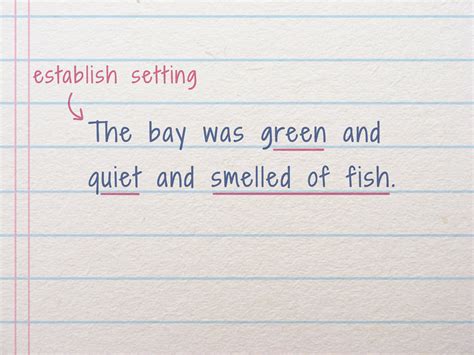 establish setting
The bay was green and
quiet and smelled of fish.